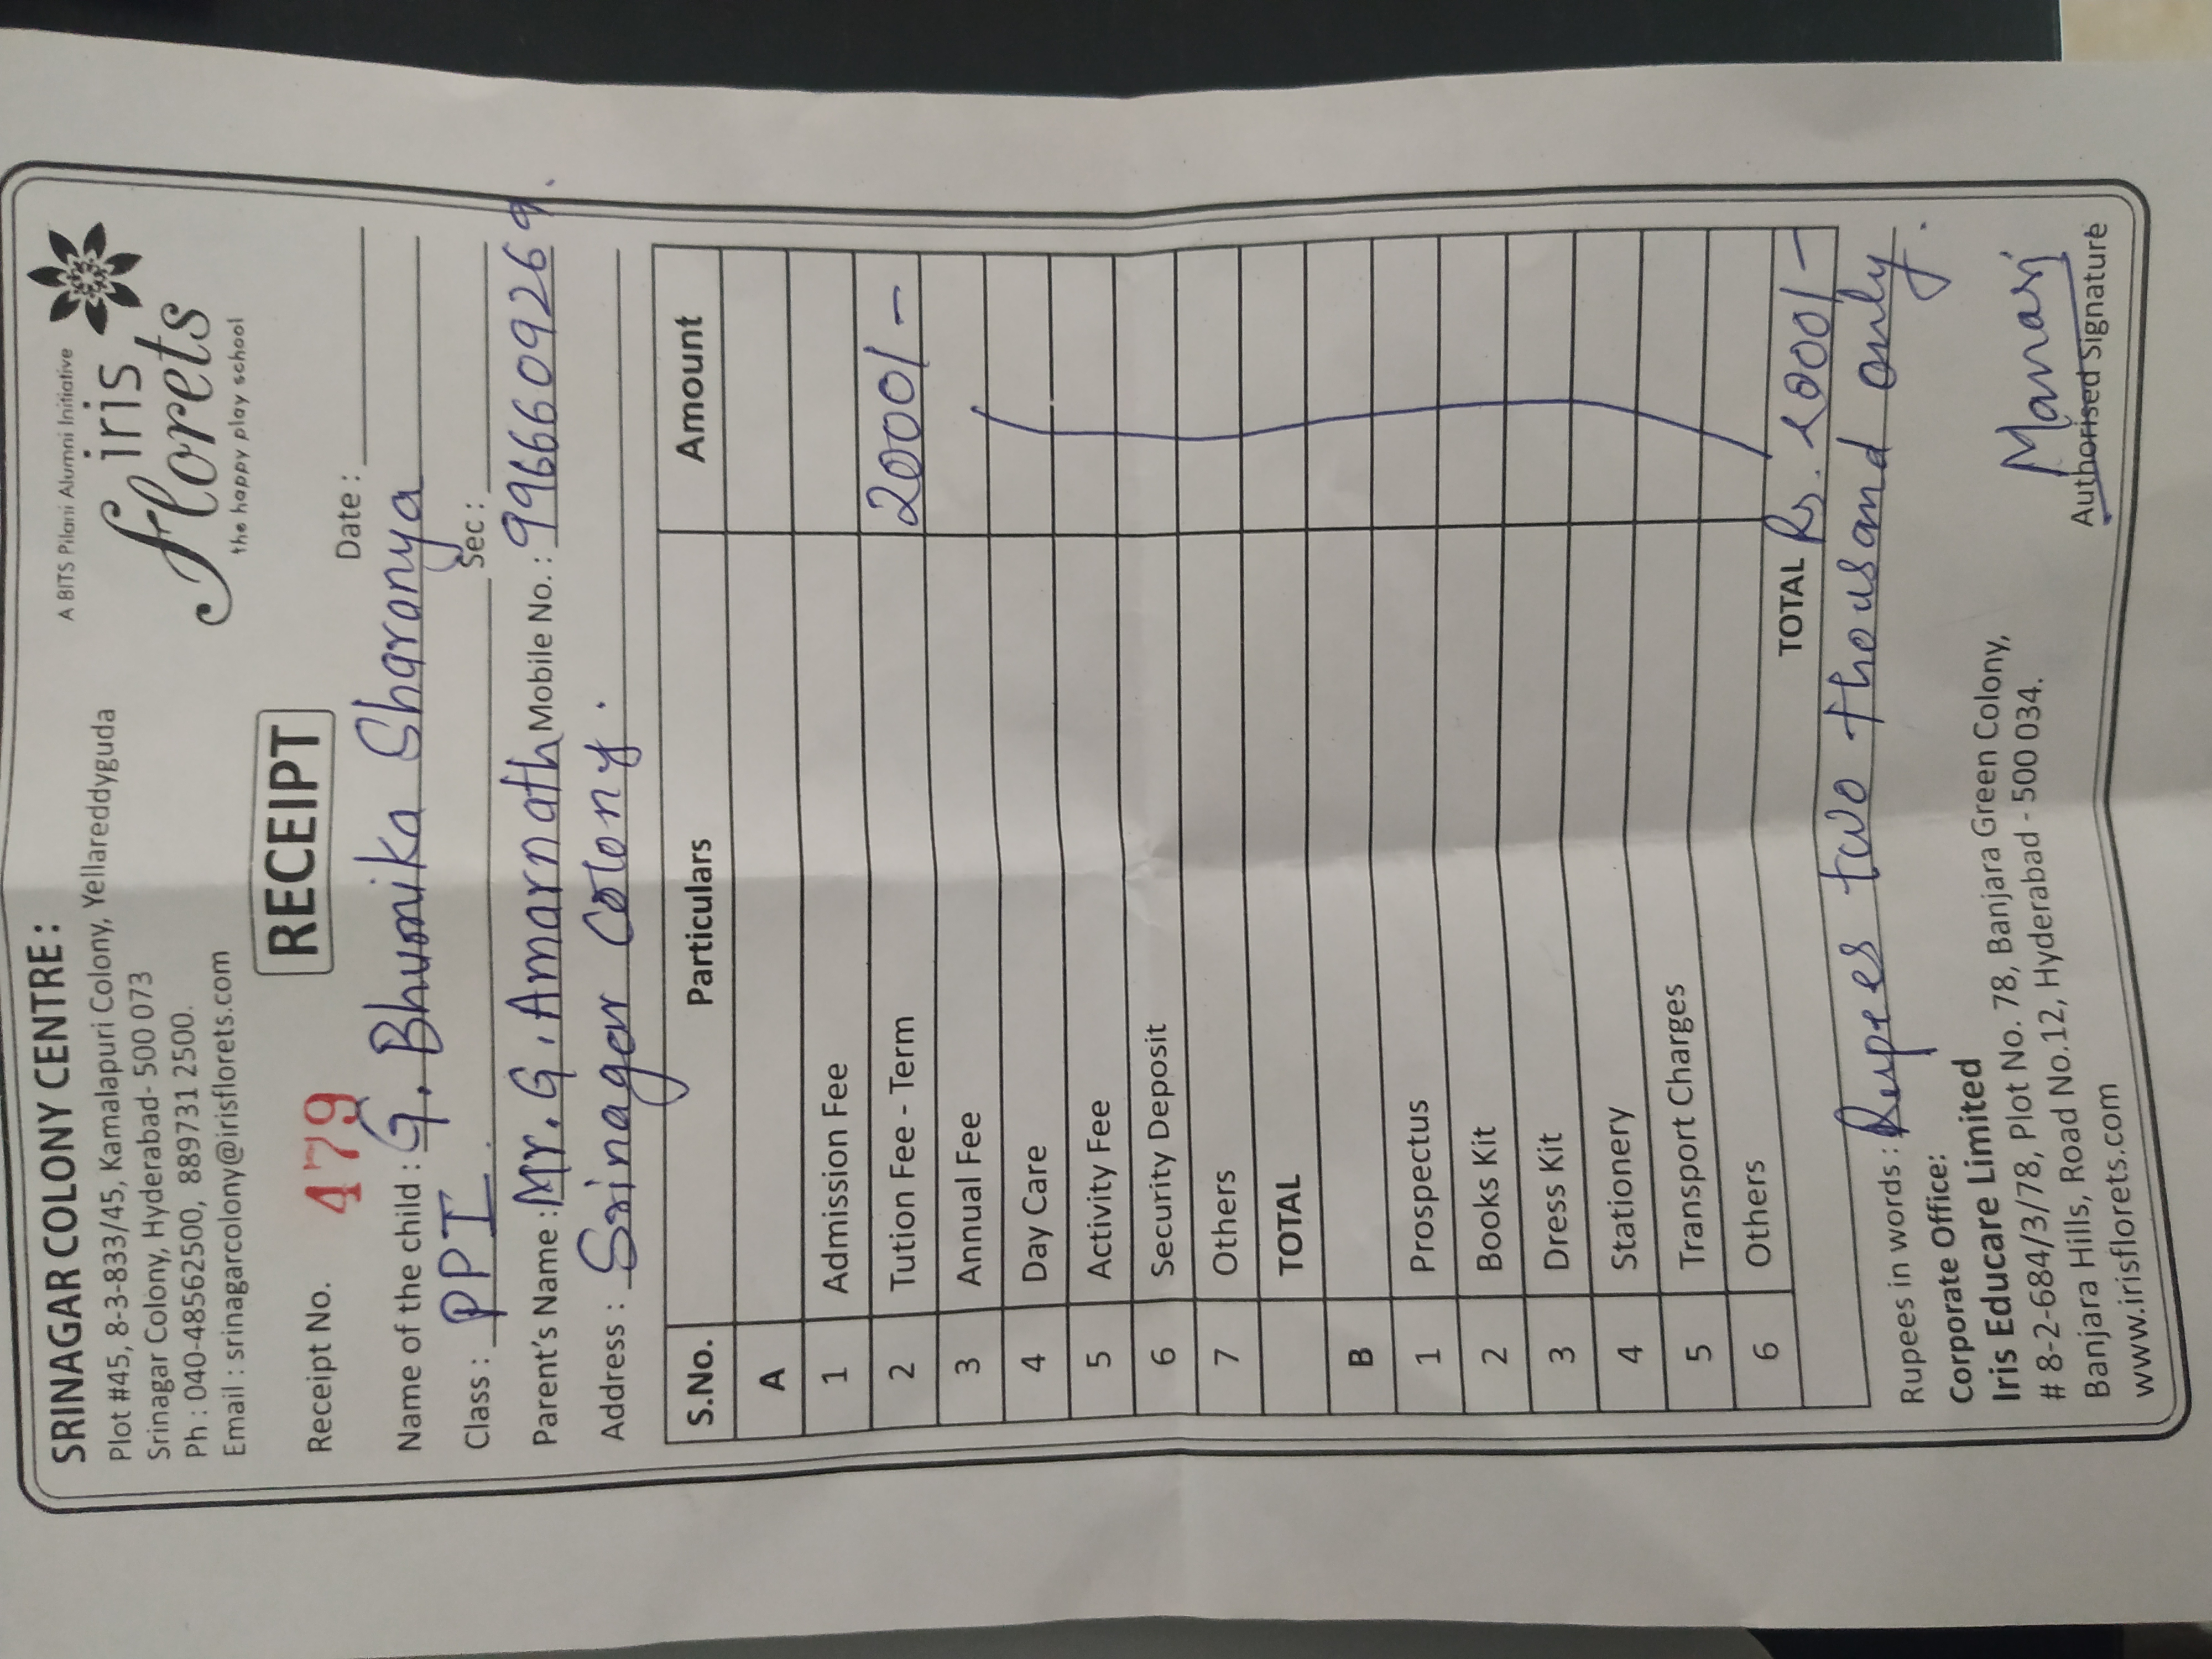 SRINAGAR COLONY CENTRE :
Plot #45, 8-3-833/45, Kamalapuri Colony, Yellareddyguda
Srinagar Colony, Hyderabad- 500 073
Ph : 040-48562500, 889731 2500.
Email : srinagarcolony@irisflorets.com
A BITS Pilani Alumni Initiative
iris
florets
the happy play school
RECEIPT
Receipt No. 479
Date :
Name of the child : G. Bhumika Sharanya
Class : PPI. Sec :
Parent's Name : Mr. G. Amarnath Mobile No. : 9966609269.
Address : Srinagar Colony.
S.No. Particulars Amount
A
1 Admission Fee
2 Tution Fee - Term 2000/-
3 Annual Fee
4 Day Care
5 Activity Fee
6 Security Deposit
7 Others
TOTAL
B
1 Prospectus
2 Books Kit
3 Dress Kit
4 Stationery
5 Transport Charges
6 Others
TOTAL Rs. 2000/-
Rupees in words : Rupees two thousand only.
Corporate Office:
Iris Educare Limited
# 8-2-684/3/78, Plot No. 78, Banjara Green Colony,
Banjara Hills, Road No.12, Hyderabad - 500 034.
www.irisflorets.com
Manasi
Authorised Signature